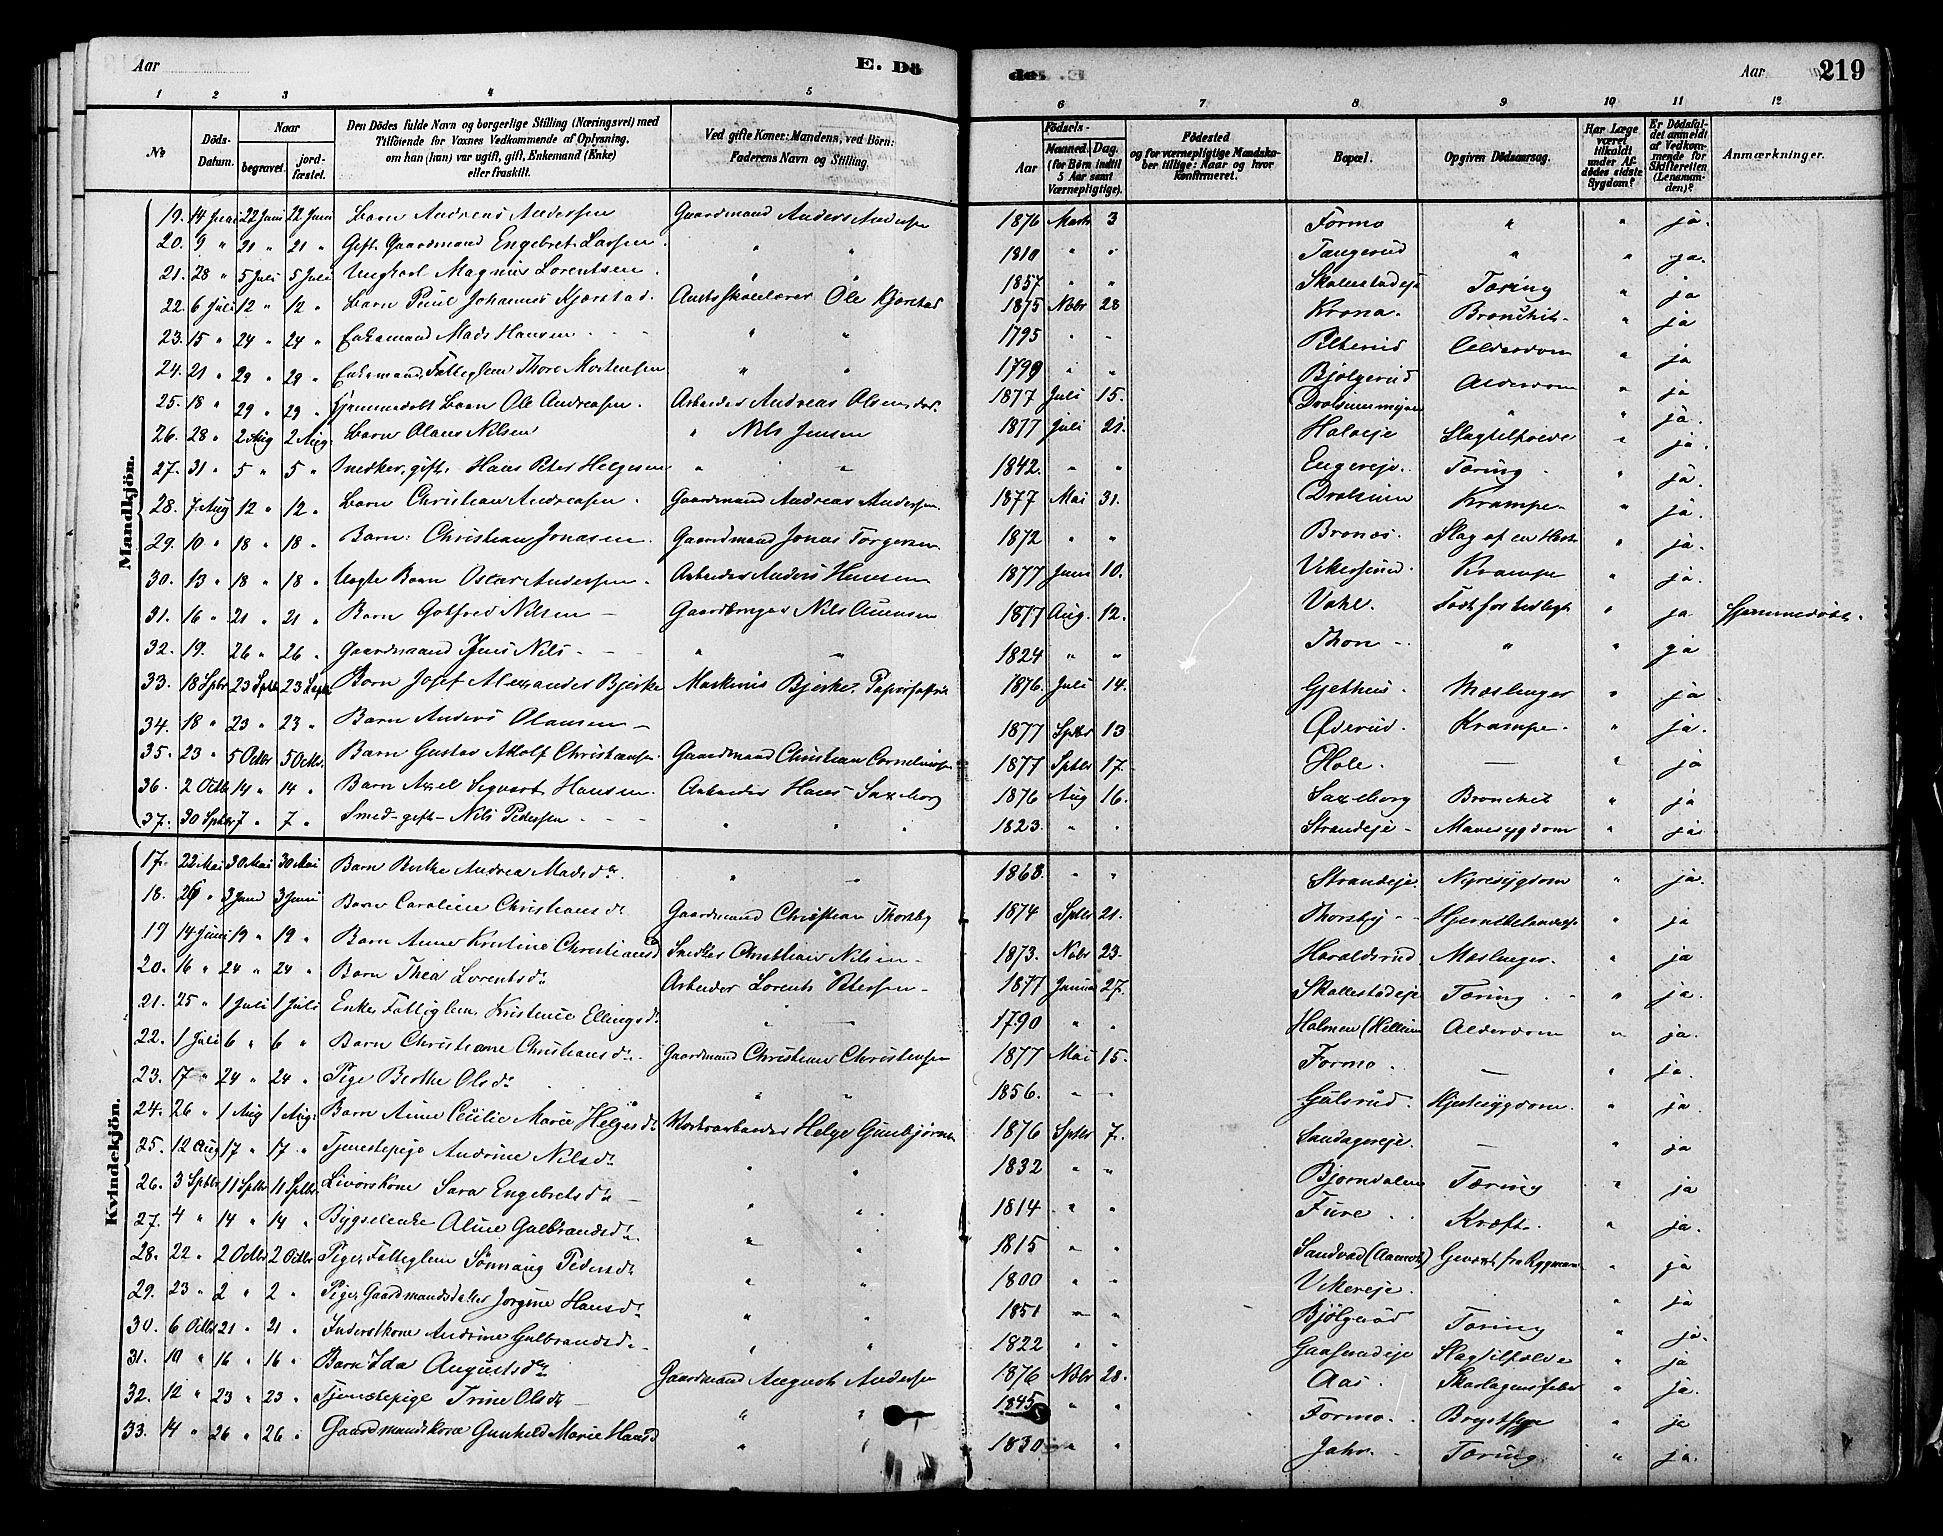 Aar E. Dö de. Aar 219
1 2 3 4 5 6 7 8 9 10 11 12
No
Döds-Datum.
Naar
begravet.
jordfæstet.
Den Dödes fulde Navn og borgerlige Stilling (Næringsvei) med
Tilföiende for Voxnes Vedkommende af Oplysning,
om han (hun) var ugift, gift, Enkemand (Enke)
eller fraskilt.
Ved gifte Koner: Mandens, ved Börn:
Faderens Navn og Stilling.
Födsels-
Aar
Maaned. Dag.
(for Börn indtil
5 Aar samt
Værnepligtige).
Födested
og for værnepligtige Mandskaber
tillige: Naar og hvor
konfirmeret.
Bopæl.
Opgiven Dödsaarsag.
Har Læge
været
tilkaldt
under Afdödes
sidste
Sygdom?
Er Dödsfaldet
anmeldt
af Vedkommende
for
Skifteretten
(Lensmanden)?
Anmærkninger.
Mandkjön.
19. 14 Juni 22 Juni 22 Juni Barn Andreas Andersen Gaardmand Anders Andersen 1876 Marts 3 Formo " " ja.
20. 9 " 21 " 21 " Gift. Gaardmand Engebret Larsen. " " 1810 " " Tangerud " " ja.
21. 28 " 5 Juli 5 Juli Ungkarl Magnus Lorentsen. " " 1857 " " Skallestadeje Tæring " ja
22. 6 Juli 12 " 12 " Barn Paul Johannes Kjørstad. Amtsskolelærer Ole Kjørstad 1875 Nobr 28 Krona. Bronchit " ja
23. 15 " 24 " 24 " Enkemand Mads Hansen " " 1795 " " Pilterud Alderdom " ja
24. 21 " 29 " 29 " Enkemand, Fattiglem Thore Mortensen " " 1799 " " Bjølgerud Alderdom " ja
25. 18 " 29 " 29 " hjemmedøbt Barn Ole Andreasen. Arbeider Andreas Olsen 1877 Juli 15. " " ja.
26. 28 " 2 Aug 2 Aug Barn Olaus Nilsen " Nils Jensen 1877 Juli 21. Slagtilfælde " ja.
27. 31 " 5 " 5 " Snedker, gift, Hans Peter Helgesen " " 1842. " " Engereje. Tæring " ja.
28. 7 Aug 12 " 12 " Barn Christian Andreasen. Gaardmand Andreas Andersen. 1877 Mai 31. Krampe " ja.
29. 10 " 18 " 18 " Barn: Christian Jonasen. Gaardmand Jonas Torgersen 1872 " " Slag af en Hest " ja.
30. 13 " 18 " 18 " Uægte Barn Oscar Andersen. Arbeider Anders Hansen 1877 Juni 10. Vikersund. Krampe " ja.
31. 16 " 21 " 21 " Barn Gotfred Nilsen Gaardbruger Nils 1877 Aug. 12. Født for tidligt " ja Hjemmedøbt.
32. 19. 26 " 26 " Gaardmand Jens Nils " " 1824 " " Thon " " ja
33. 18 Sptbr 23 Sptbr 23 Septbr Barn Josef Alexander Bjerke Maskinist Bjerke, Papirfabrik 1876. Juli 14. Gjethus. Mæslinger " ja
34. 18 " 23 " 23 " Barn Anders Olausen 1877 Sptbr 13 Øderud. Krampe " ja.
35. 23 " 5 Octbr 5 Octbr. Barn Gustav Adolf Christiansen. Gaardmand Christian Corneliusen 1877 Sptbr 17. Hole. " ja
36. 2 Octb 14 " 14 " Barn Axel Sigvart Hansen. Arbeider Hans Saxeborg 1876 Aug 16. Saxeborg Bronchit " ja
37. 30 Sptbr 7 " 7 " Smed - gift - Nils Pedersen " " 1823. " " Strandeje Mavesygdom " ja
Kvindekjön.
17. 22 Mai 30 Mai 30 Mai Barn Berthe Andrea Madsdr. " " 1863. " " Strandeje. Nyresygdom " ja.
18. 26 " 3 Juni 3 Juni Barn Caroline Christiansdr. Gaardmand Christian Thorsby 1874 Sptbr 21. Thorsby " ja
19 14 Juni 19 " 19 " Barn Anne Kristine Christiansd Snedker Christian Nilsen 1873. Nobr 23. Haraldsrud Mæslinger. " ja
20. 16 " 24 " 24 " Barn Thea Lorentsdr. Arbeider Lorents Petersen 1877 Januar 27. Skallestadeje Tæring " ja.
21. 25 " 1 Juli 1 Juli Enke, Fattiglem Kristence Ellingsdr " 1790 " " Holmen (Hellum Alderdom " ja.
22. 1 Juli 6 " 6 " Barn Christiane Christiansdr. Gaardmand Christian Christensen 1877 Mai 15. Formo " ja.
23. 17 " 24 " 24 " Pige Berthe Olsdr " " 1856. " " Gulsrud. Hjertesygdom. " ja.
24. 26 " 1 Aug 1 Aug. Barn Anne Cecilie Marie Helgesdr. Helge Gunbjørnsen 1876 Sptbr 7. Sandagereje. " ja
25. 12 Aug 17 " 17 " Tjenestepige Andrine Nilsdr " " 1832 " " Bjørndalen Tæring " ja
26. 3 Sptbr 11 Sptbr 11 Sptbr. Livørskone Sara Engebretsdr. " " 1814 " " Fure. Kræft. " ja.
27. 4 " 14 " 14 " Bygselenke Aline Gulbrandsdr. " " 1815 " " Sandvad (Aamot) " ja
28. 22 " 2 Octbr 2 Octbr Pige, Fattiglem Sønnaug Pedersdr " " 1800 " " Vikereje. " ja
29. 23 " 2 " 2 " Pige, Gaardmandsdatter Jørgine Hansdr " " 1851 " " Bjølgerud Tæring " ja.
30. 6 Octbr 21 " 21 " Inderstkone Andrine Gulbrandsdr. " " 1822 " " Slagtilfælde " ja
31. 10 " 16 " 16 " Barn Ida Augustsdr. Gaardmand August Andersen 1876 Nobr 28. Aas. Skarlagensfeber " ja.
32. 12 " 23 " 23 " Tjenestepige Trine Olsdr " " 1845 " " Formo. Brystsyge " ja
33. 14 " 26 " 26 " Gaardmandskone Gunhild Marie Hansd " " 1830 " " Jahr. Tæring " ja.